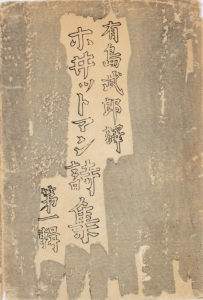 有島武郎譯
ホ井ットマン詩集
第一輯